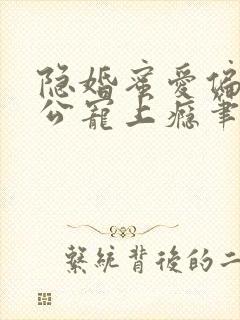 隐婚蜜爱偏
公宠上瘾笔
繫统背後的二